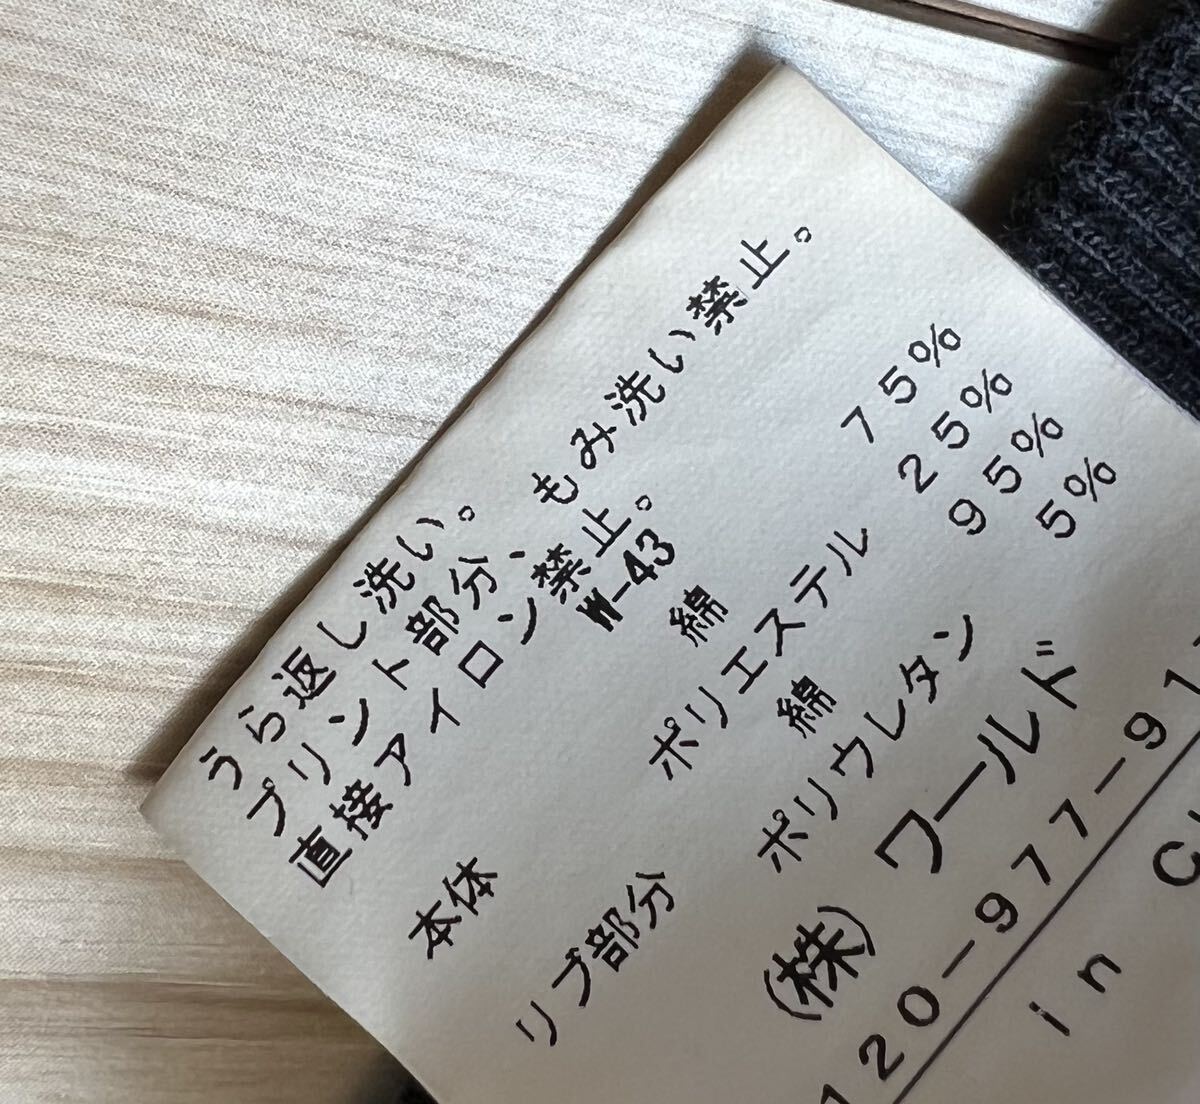 うら返し洗い。
プリント部分、もみ洗い禁止。
直接アイロン禁止。
W-43
本体 綿 75%
ポリエステル 25%
リブ部分 綿 95%
ポリウレタン 5%
(株) ワールド
120-977-91
in C